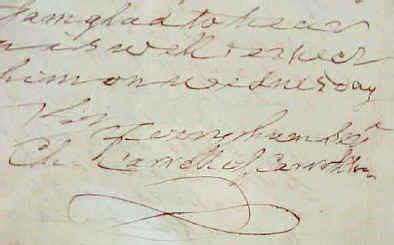 I am glad to hear
is well & expect
him on wednesday
Yr very humble Sert
Ch. Carroll of Carrollton